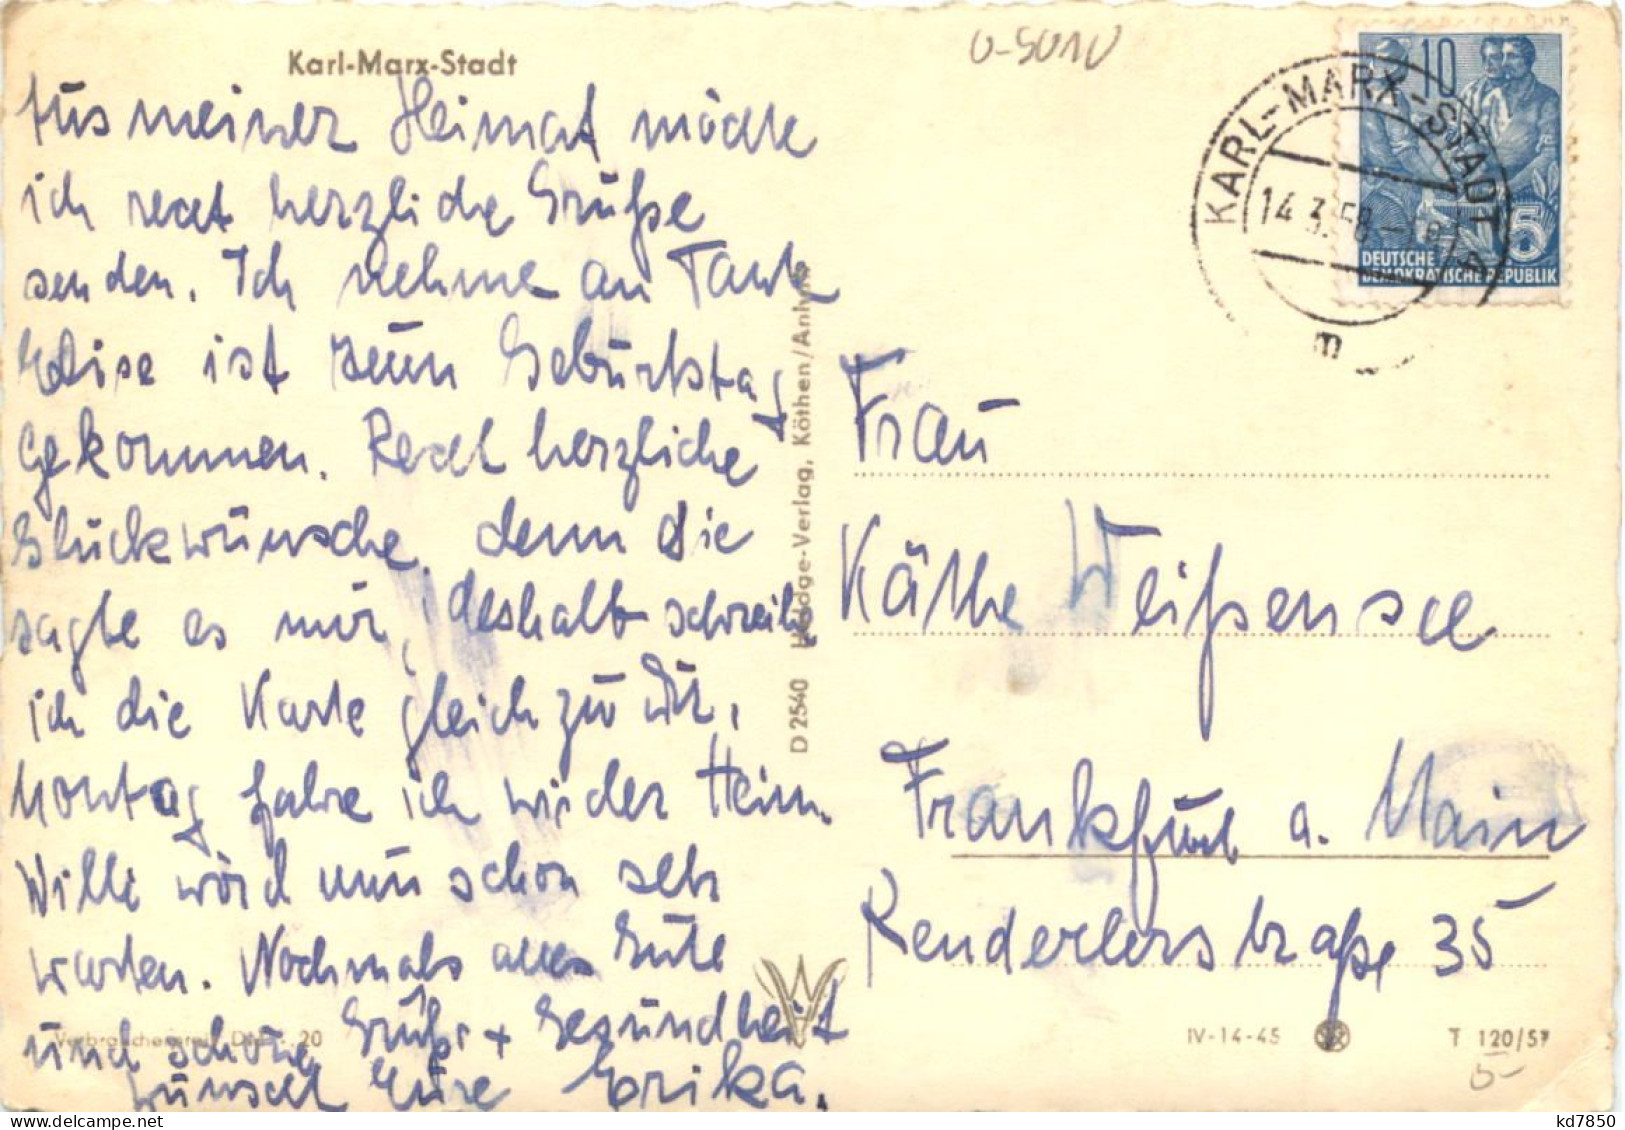 Karl-Marx-Stadt
0-5010
Aus meiner Heimat möchte
ich recht herzliche Grüße
senden. Ich nehme an Tante
Elise ist zum Geburtstag
gekommen. Recht herzliche
Glückwünsche, denn die
sagte es mir, deshalb schreibe
ich die Karte gleich zu Dir.
Montag fahre ich wieder Heim.
Willi wird nun schon sehr
warten. Nochmals alles Gute
und schöne Grüße + Gesundheit
wünscht Eure Erika.
Verbraucherpreis DM -.20
D 2540 Verlag, Köthen/Anhalt
KARL-MARX-STADT
14.3.58.-
m
10
5
DEUTSCHE
DEMOKRATISCHE REPUBLIK
Frau
Käthe Weißensee
Frankfurt a. Main
Renderlerstraße 35
IV-14-45
T 120/57
5-
kd7850